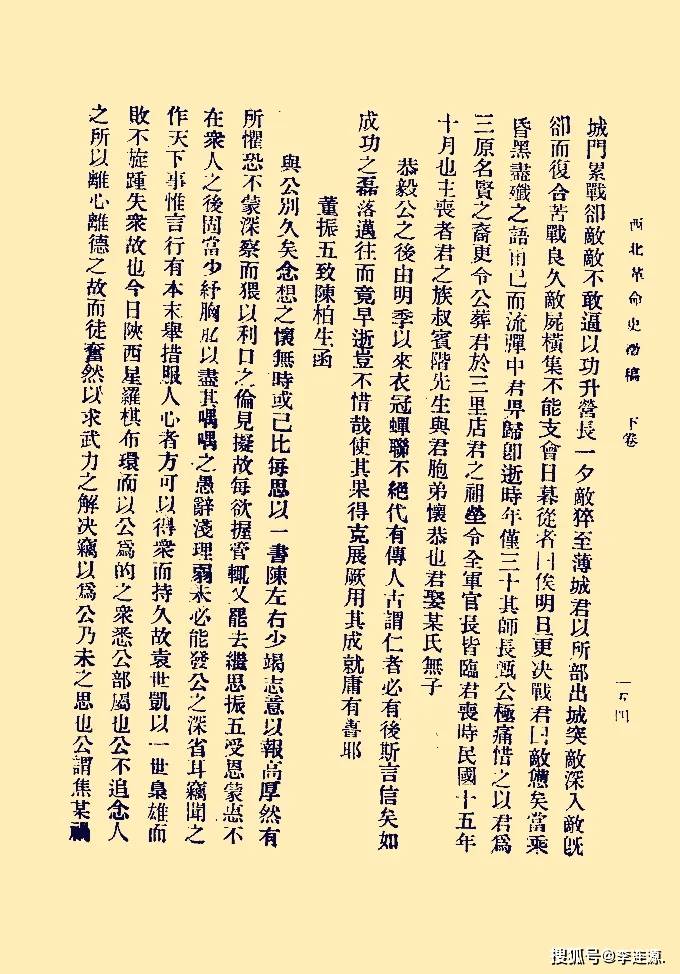 西北革命史徵稿 下卷
一五四
城門累戰卻敵敵不敢逼以功升營長一夕敵猝至薄城君以所部出城突敵深入敵旣
卻而復合苦戰良久敵屍橫集不能支會日暮從者曰俟明旦更決戰君曰敵憊矣當乘
昏黑盡殲之語甫已而流彈中君畀歸卽逝時年僅三十其師長甑公極痛惜之以君爲
三原名賢之裔更令公葬君於三里店君之祖塋令全軍官長皆臨君喪時民國十五年
十月也主喪者君之族叔賓階先生與君胞弟懷恭也君娶某氏無子
恭毅公之後由明季以來衣冠蟬聯不絕代有傳人古謂仁者必有後斯言信矣如
成功之磊落邁往而竟早逝豈不惜哉使其果得克展厥用其成就庸有耶
董振五致陳柏生函
與公別久矣念想之懷無時或已比每思以一書陳左右少竭志意以報高厚然有
所懼恐不蒙深察而猥以利口之倫見擬故每欲握管輒又罷去繼思振五受恩蒙惠不
在衆人之後固當少紓胸肊以盡其喁喁之愚辭淺理弱未必能發公之深省耳竊聞之
作天下事惟言行有本末舉措服人心者方可以得衆而持久故袁世凱以一世梟雄而
敗不旋踵失衆故也今日陝西星羅棋布環而以公爲的之衆悉公部屬也公不追念人
之所以離心離德之故而徒奮然以求武力之解決竊以爲公乃未之思也公謂焦某禍
搜狐号@李连源.